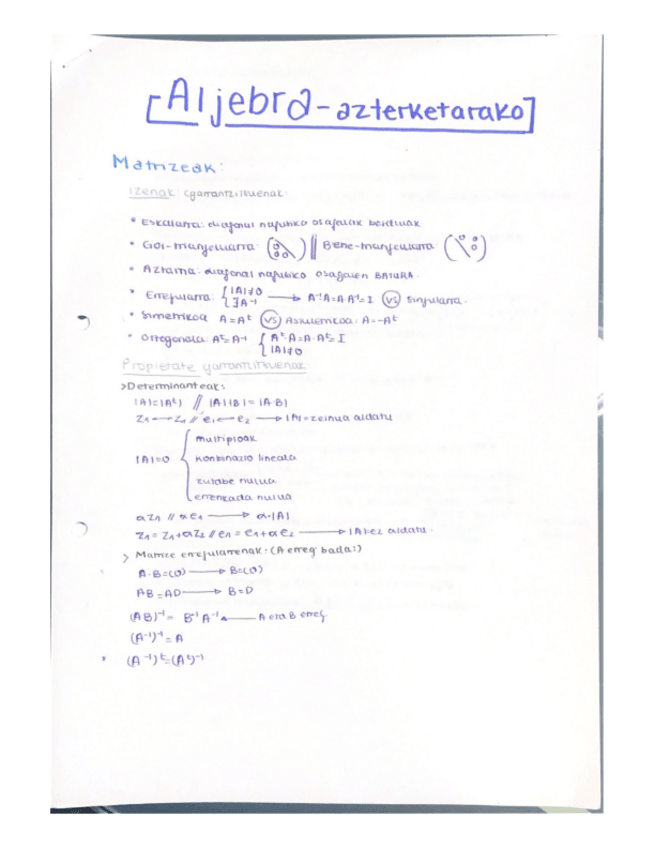 [Aljebra - azterketarako]
Matrizeak:
Izenak garrantzitsuenak:
* Eskalarra: diagonal nagusiko osagaiak berdinak
* Goi-triangeluarra: ( 0 0 0 ) || Behe-triangeluarra: ( 0 0 0 )
* Aztarna: diagonal nagusiko osagaien BATURA.
* Erregularra: { |A|≠0 ∃A⁻¹ → A⁻¹A=A·A⁻¹=I (VS) Singularra.
* Simetrikoa A=Aᵗ (VS) Asimetrikoa: A=-Aᵗ
* Ortogonala: Aᵗ=A⁻¹ { Aᵗ·A=A·Aᵗ=I |A|≠0
Propietate garrantzitsuenak
>Determinanteak:
|A|=|Aᵗ| // |A||B|=|A·B|
z₁ ↔ z₂ // e₁ ↔ e₂ → |A|=zeinua aldatu
|A|=0 { multiploak
konbinazio lineala
zutabe nulua
errenkada nulua
αz₁ // αe₁ → α·|A|
z₁=z₁+αz₂ // e₁=e₁+αe₂ → |A| ez aldatu.
> Matrize erregularrenak: (A erreg bada:)
A·B=(0) → B=(0)
AB=AD → B=D
(AB)⁻¹= B⁻¹A⁻¹ ← A eta B erreg.
(A⁻¹)⁻¹=A
* (A⁻¹)ᵗ=(Aᵗ)⁻¹